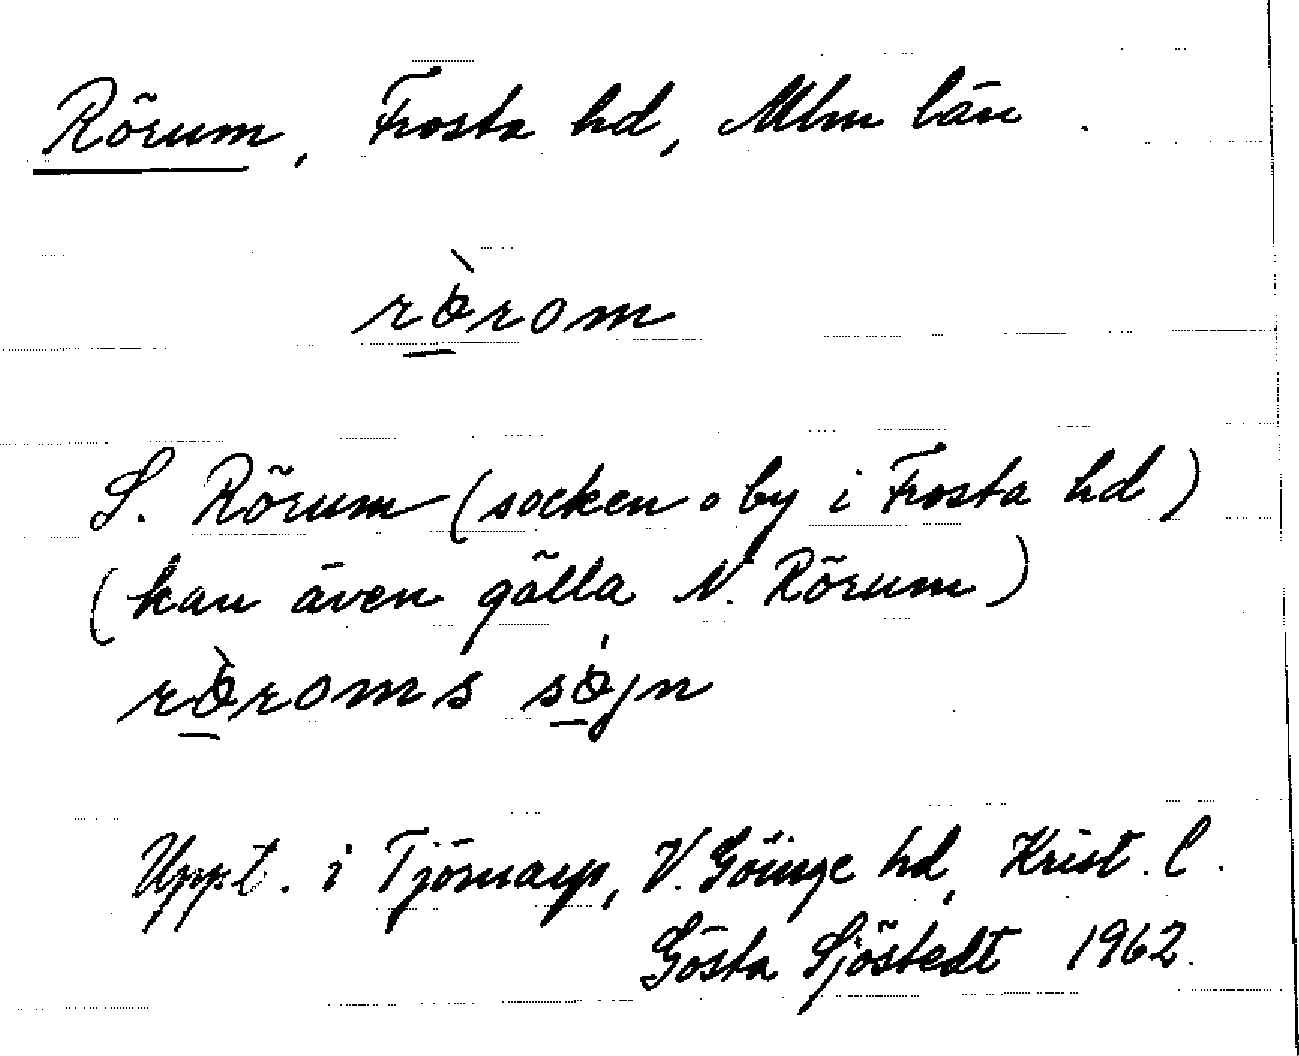 Rörum, Frosta hd, Mlm län.
rö̀rom
S. Rörum (socken o by i Frosta hd)
(kan även gälla N. Rörum)
rö̀roms söjn
Uppt. i Tjörnarp, V. Göinge hd, Krist. l.
Gösta Sjöstedt 1962.